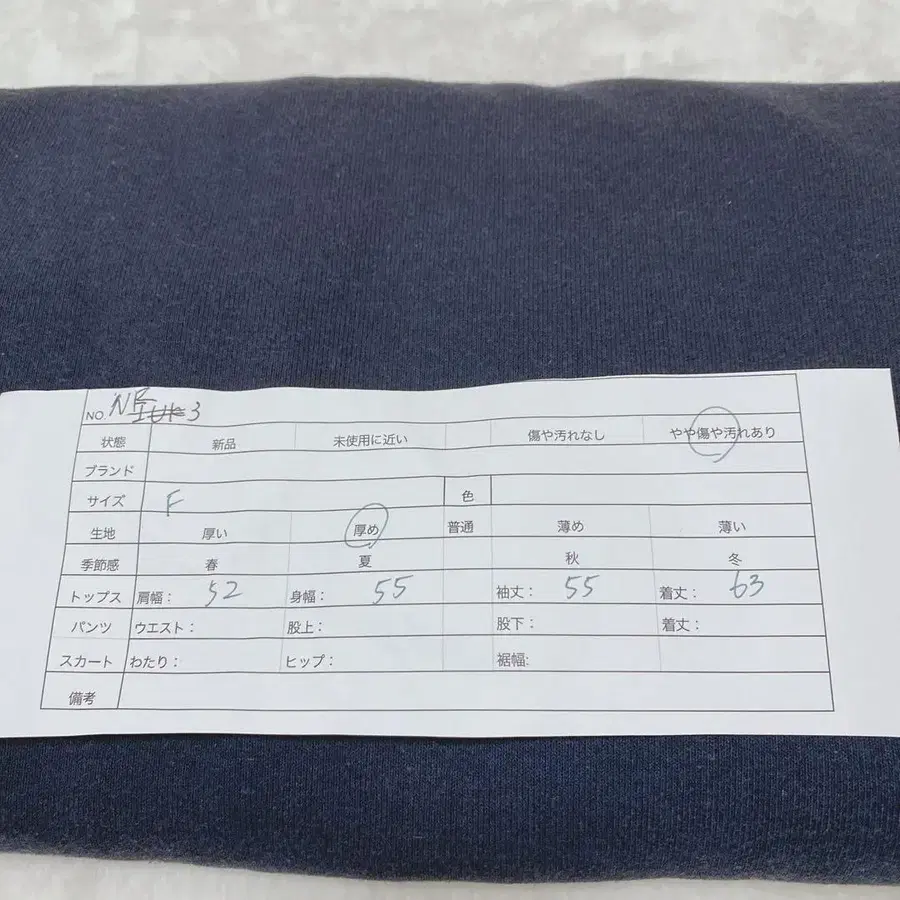 NO. NR 3
状態 新品 未使用に近い 傷や汚れなし やや傷や汚れあり
ブランド
サイズ F 色
生地 厚い 厚め 普通 薄め 薄い
季節感 春 夏 秋 冬
トップス 肩幅: 52 身幅: 55 袖丈: 55 着丈: 63
パンツ ウエスト: 股上: 股下: 着丈:
スカート わたり: ヒップ: 裾幅:
備考